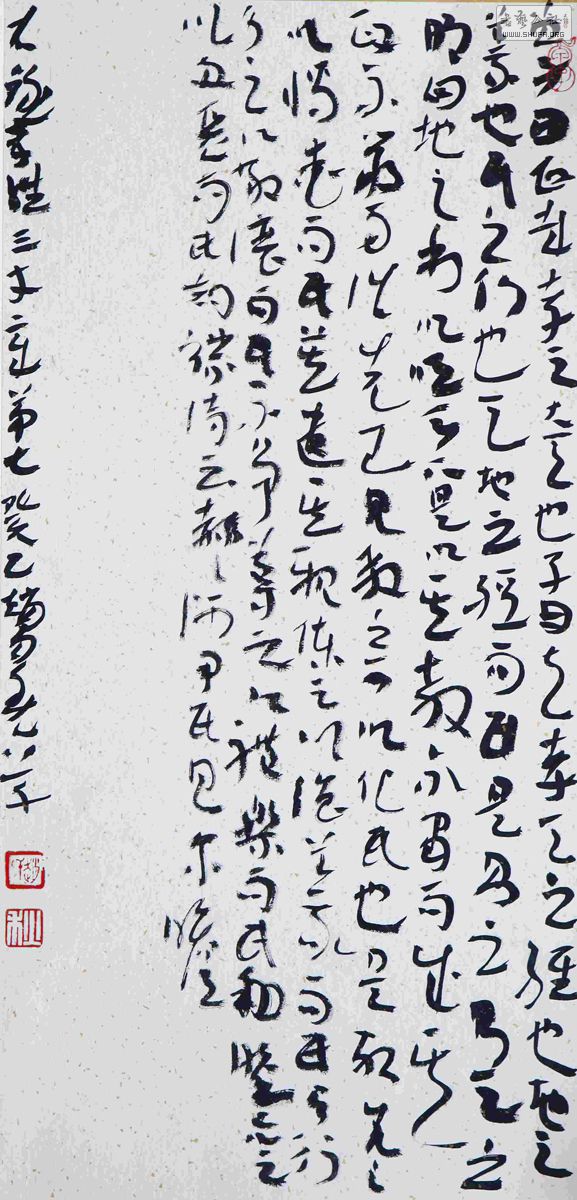 曾子曰甚哉孝之大也子曰夫孝天之經也地之
義也民之行也天地之經而民是則之則天之
明因地之利以順天下是以其教不肅而成其
政不嚴而治先王見教之可以化民也是故先之
以博愛而民莫遺其親陳之以德義而民興行
先之以敬讓而民不爭導之以禮樂而民和睦示之
以好惡而民知禁詩云赫赫師尹民具爾瞻
右錄孝經三才章第七癸巳趙
WWW.SHUFA.ORG